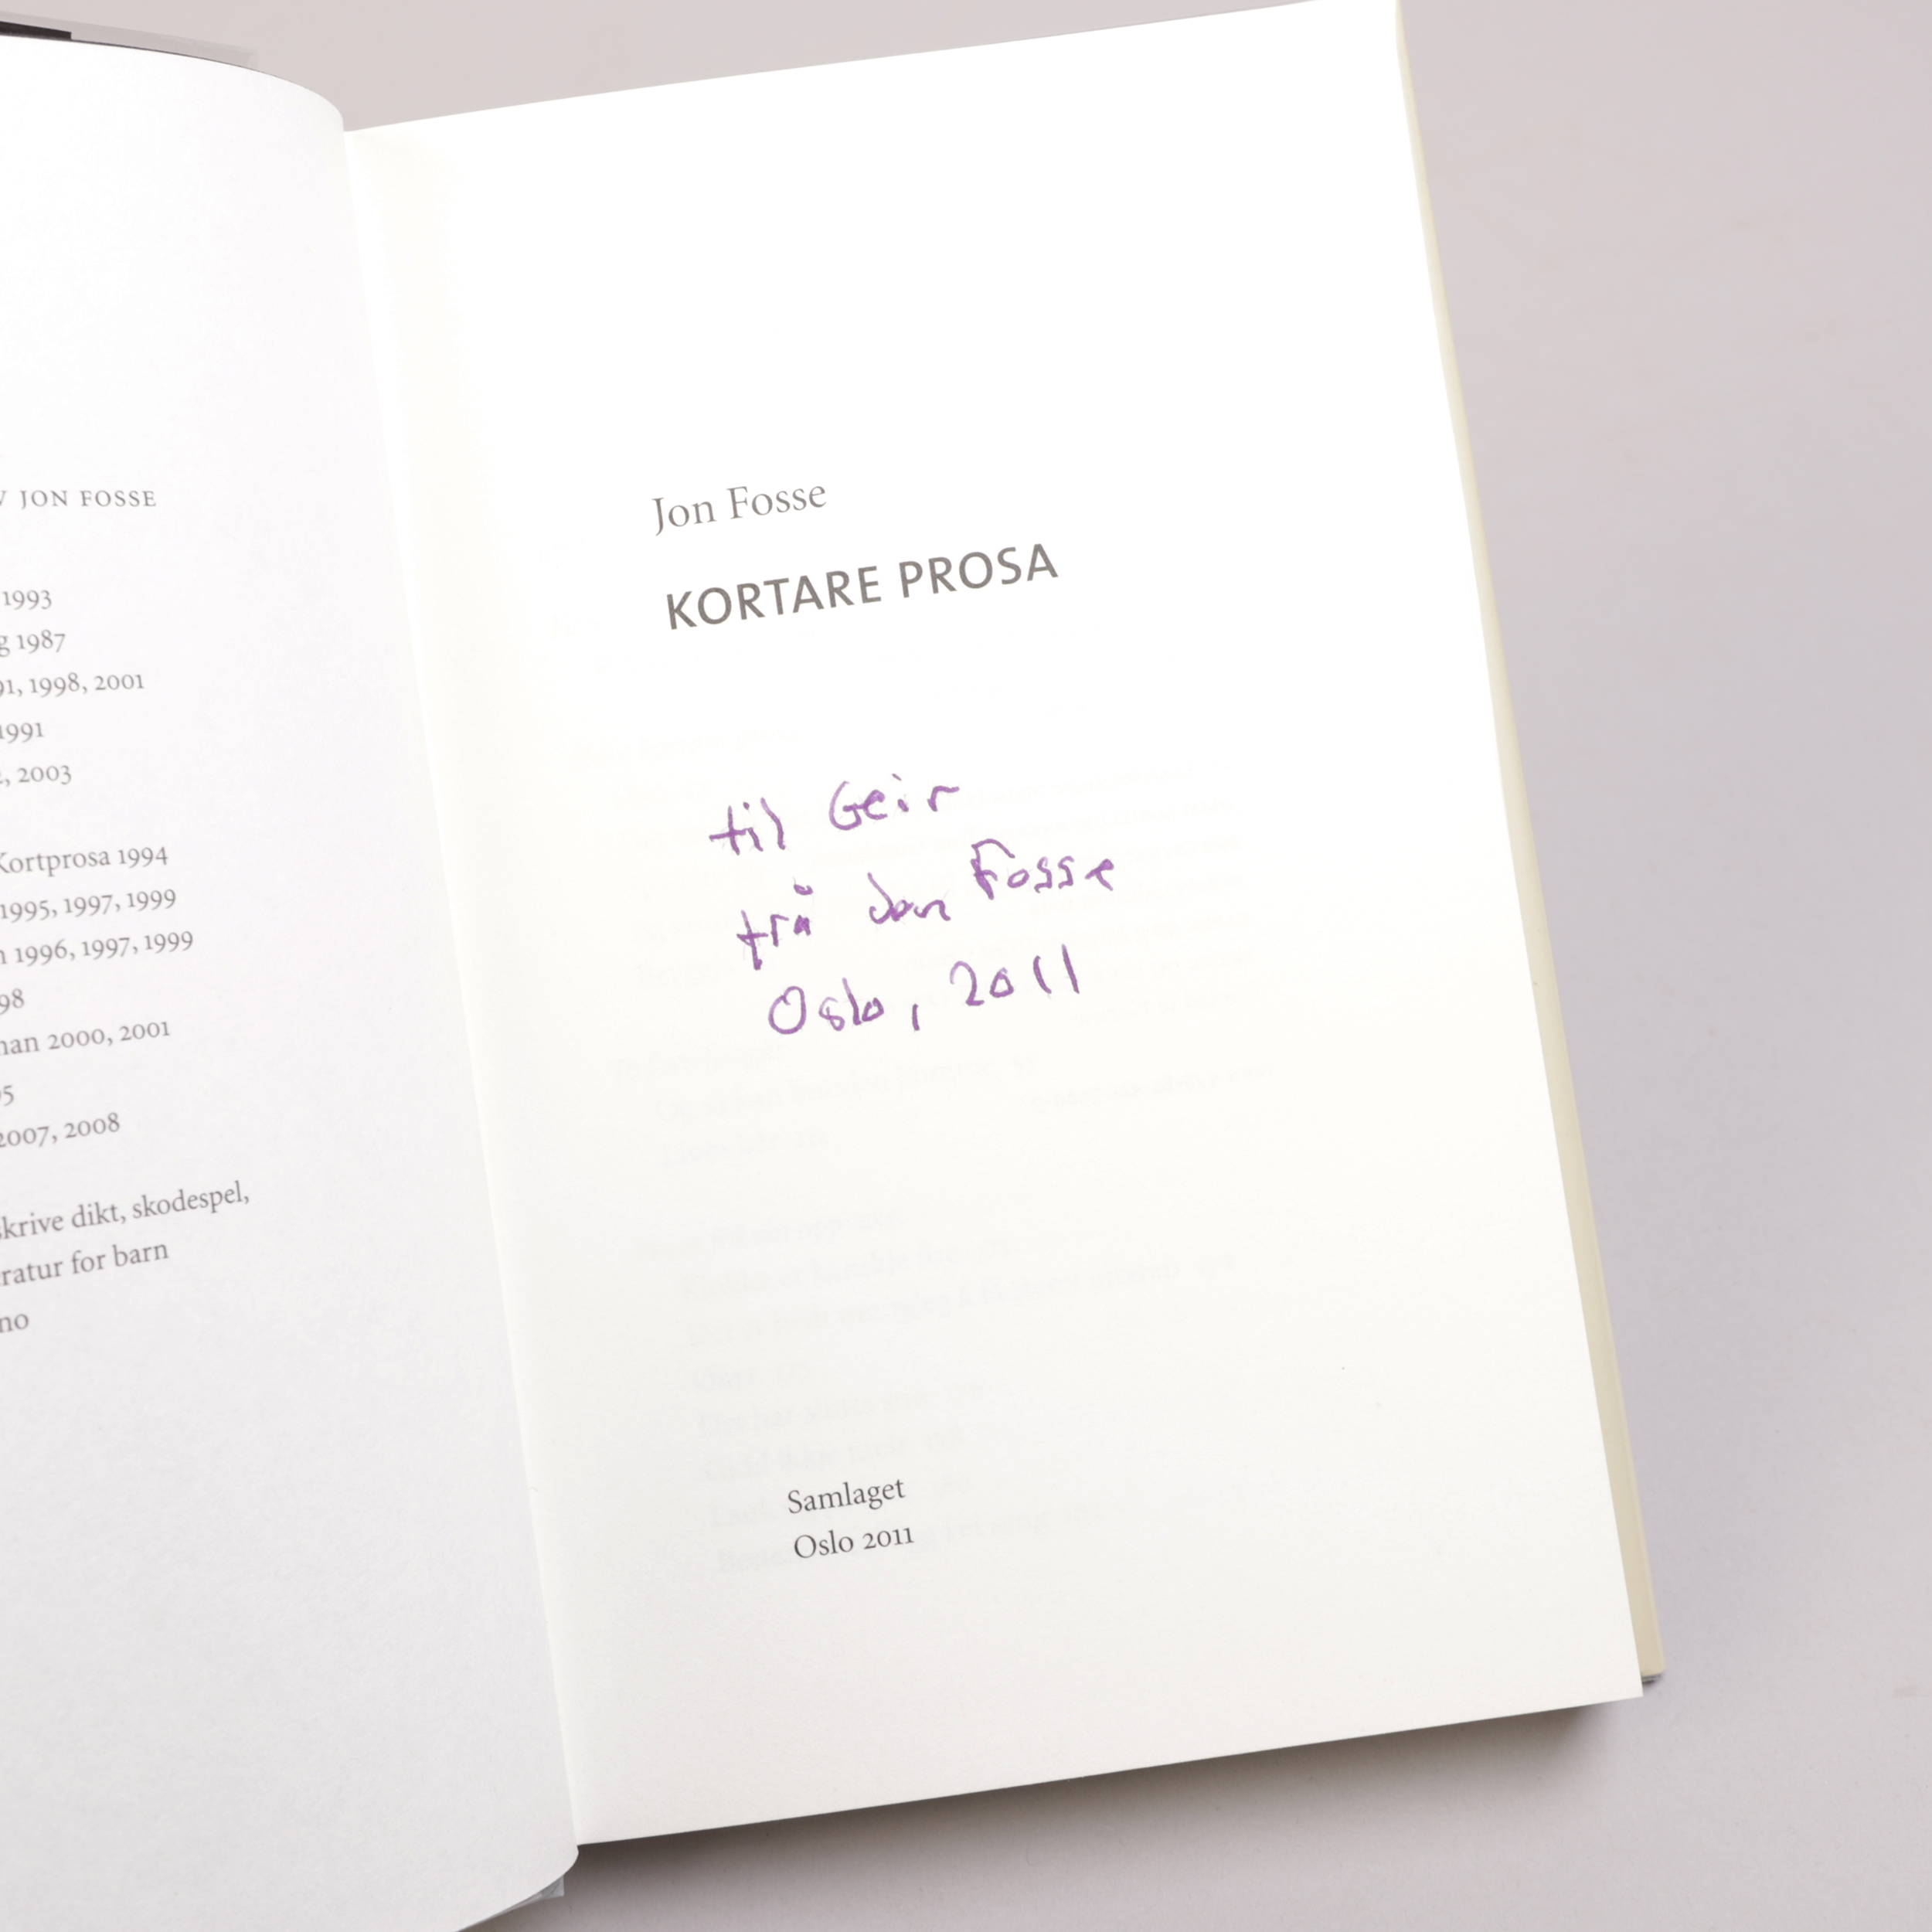 JON FOSSE
1993
1987
1998, 2001
1991
2003
Kortprosa 1994
1995, 1997, 1999
1996, 1997, 1999
98
2000, 2001
2007, 2008
skrive dikt, skodespel,
for barn
no
Jon Fosse
KORTARE PROSA
til Geir
frå Jon Fosse
Oslo, 2011
Samlaget
Oslo 2011